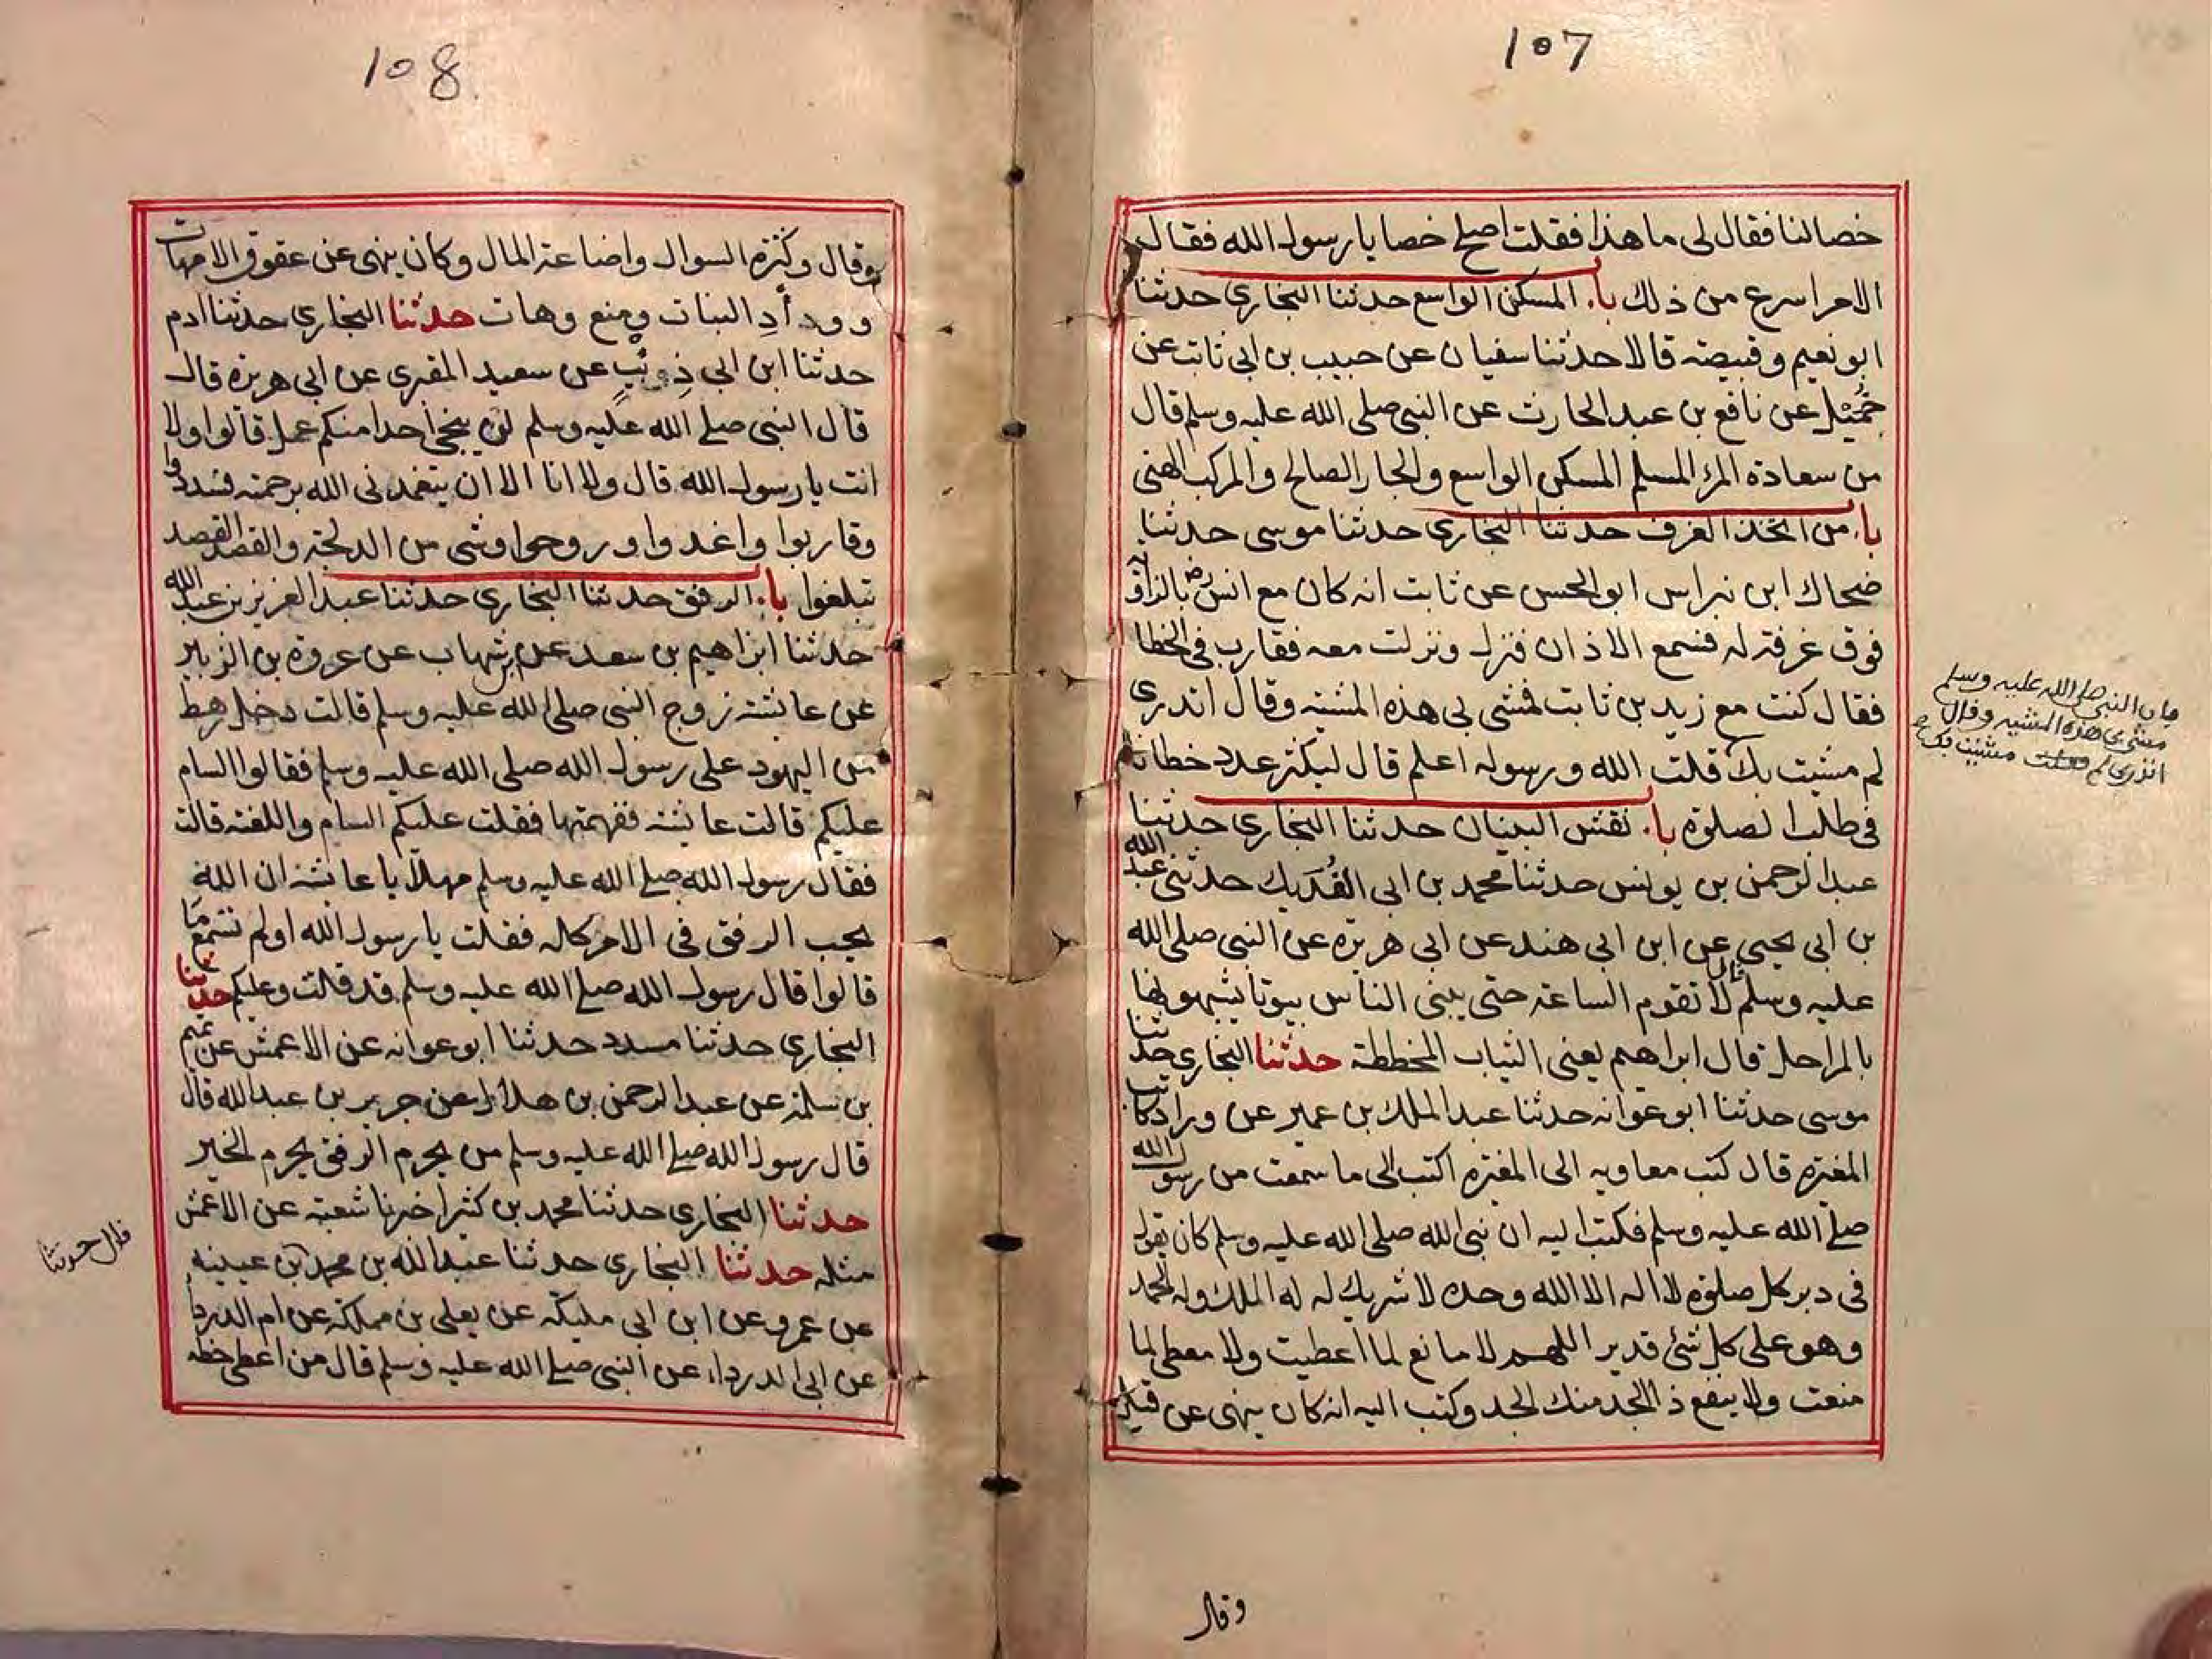 107
خصا لنا فقال لى ما هذا فقلت اصلح خصا يا رسول الله فقال
الامر اسرع من ذلك باب المسكن الواسع حدثنا البخاري حدثنا
ابو نعيم وقبيصة قالا حدثنا سفيان عن حبيب بن ابى ثابت عن
خُمَيْل عن نافع بن عبد الحارث عن النبى صلى الله عليه وسلم قال
من سعادة المرء المسلم المسكن الواسع والجار الصالح والمركب الهنى
باب من اتخذ الغرف حدثنا البخاري حدثنا موسى حدثنا
ضحاك ابن نبراس ابو الحسن عن ثابت انه كان مع انس رض بالزاوية
فوق غرفة له فسمع الاذان فنزل ونزلت معه فقارب فى الخطا
فقال كنت مع زيد بن ثابت فمشى بى هذه المشية وقال اتدرى
لم مشيت بك قلت الله ورسوله اعلم قال ليكثر عدد خطانا
فى طلب الصلوة باب نقش البنيان حدثنا البخاري حدثنا
عبد الرحمن بن يونس حدثنا محمد بن ابى الفُدَيك حدثنى عبد الله
بن ابى يحيى عن ابن ابى هند عن ابى هريرة عن النبى صلى الله
عليه وسلم قال لا تقوم الساعة حتى يبنى الناس بيوتا يشبهونها
بالمراحل قال ابراهيم يعنى الثياب المخططة حدثنا البخاري حدثنا
موسى حدثنا ابو عوانه حدثنا عبد الملك بن عمير عن وراد كاتب
المغيرة قال كتب معاويه الى المغيرة اكتب الى ما سمعت من رسول الله
صلى الله عليه وسلم فكتب اليه ان نبى الله صلى الله عليه وسلم كان يقول
فى دبر كل صلوة لا اله الا الله وحده لا شريك له له الملك وله الحمد
وهو على كل شئ قدير اللهم لا مانع لما اعطيت ولا معطى لما
منعت ولا ينفع ذا الجد منك الجد وكتب اليه انه كان ينهى عن قيل
وقال
النبى صلى الله عليه وسلم
مشى بى هذه المشيه وقال
اتدرى لم مشيت بك
108
وقال وكثرة السوال واضاعة المال وكان ينهى عن عقوق الامهات
وودأدِ البنات ومنع وهات حدثنا البخاري حدثنا ادم
حدثنا ابن ابى ذويب عن سعيد المقبرى عن ابى هريرة قال
قال النبى صلى الله عليه وسلم لن ينجى احدا منكم عمل قالوا ولا
انت يا رسول الله قال ولا انا الا ان يتغمدنى الله برحمته فسددوا
وقاربوا واغدوا وروحوا وشئ من الدلجة والقصد القصد
تبلغوا باب الرفق حدثنا البخاري حدثنا عبد العزيز بن عبد الله
حدثنا ابراهيم بن سعد عن ابن شهاب عن عروة بن الزبير
عن عايشة زوج النبى صلى الله عليه وسلم قالت دخل رهط
من اليهود على رسول الله صلى الله عليه وسلم فقالوا السام
عليكم قالت عايشة ففهمتها فقلت عليكم السام واللعنة قالت
فقال رسول الله صلى الله عليه وسلم مهلًا يا عايشة ان الله
يحب الرفق فى الامر كله فقلت يا رسول الله اولم تسمع ما
قالوا قال رسول الله صلى الله عليه وسلم قد قلت وعليكم حدثنا
البخاري حدثنا مسدد حدثنا ابو عوانه عن الاعمش عن تميم
بن سلمة عن عبد الرحمن بن هلال عن جرير بن عبد الله قال
قال رسول الله صلى الله عليه وسلم من يحرم الرفق يحرم الخير
حدثنا البخاري حدثنا محمد بن كثير اخبرنا شعبة عن الاعمش
مثله حدثنا البخاري حدثنا عبد الله بن محمد بن عيينه
عن عمرو عن ابن ابى مليكه عن يعلى بن مملكة عن ام الدرداء
عن ابى الدرداء عن النبى صلى الله عليه وسلم قال من اعطى حظه
قال حدثنا